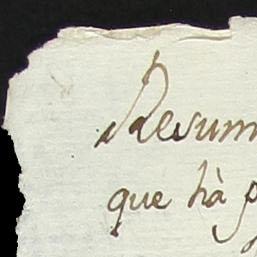 Resum
que hà p